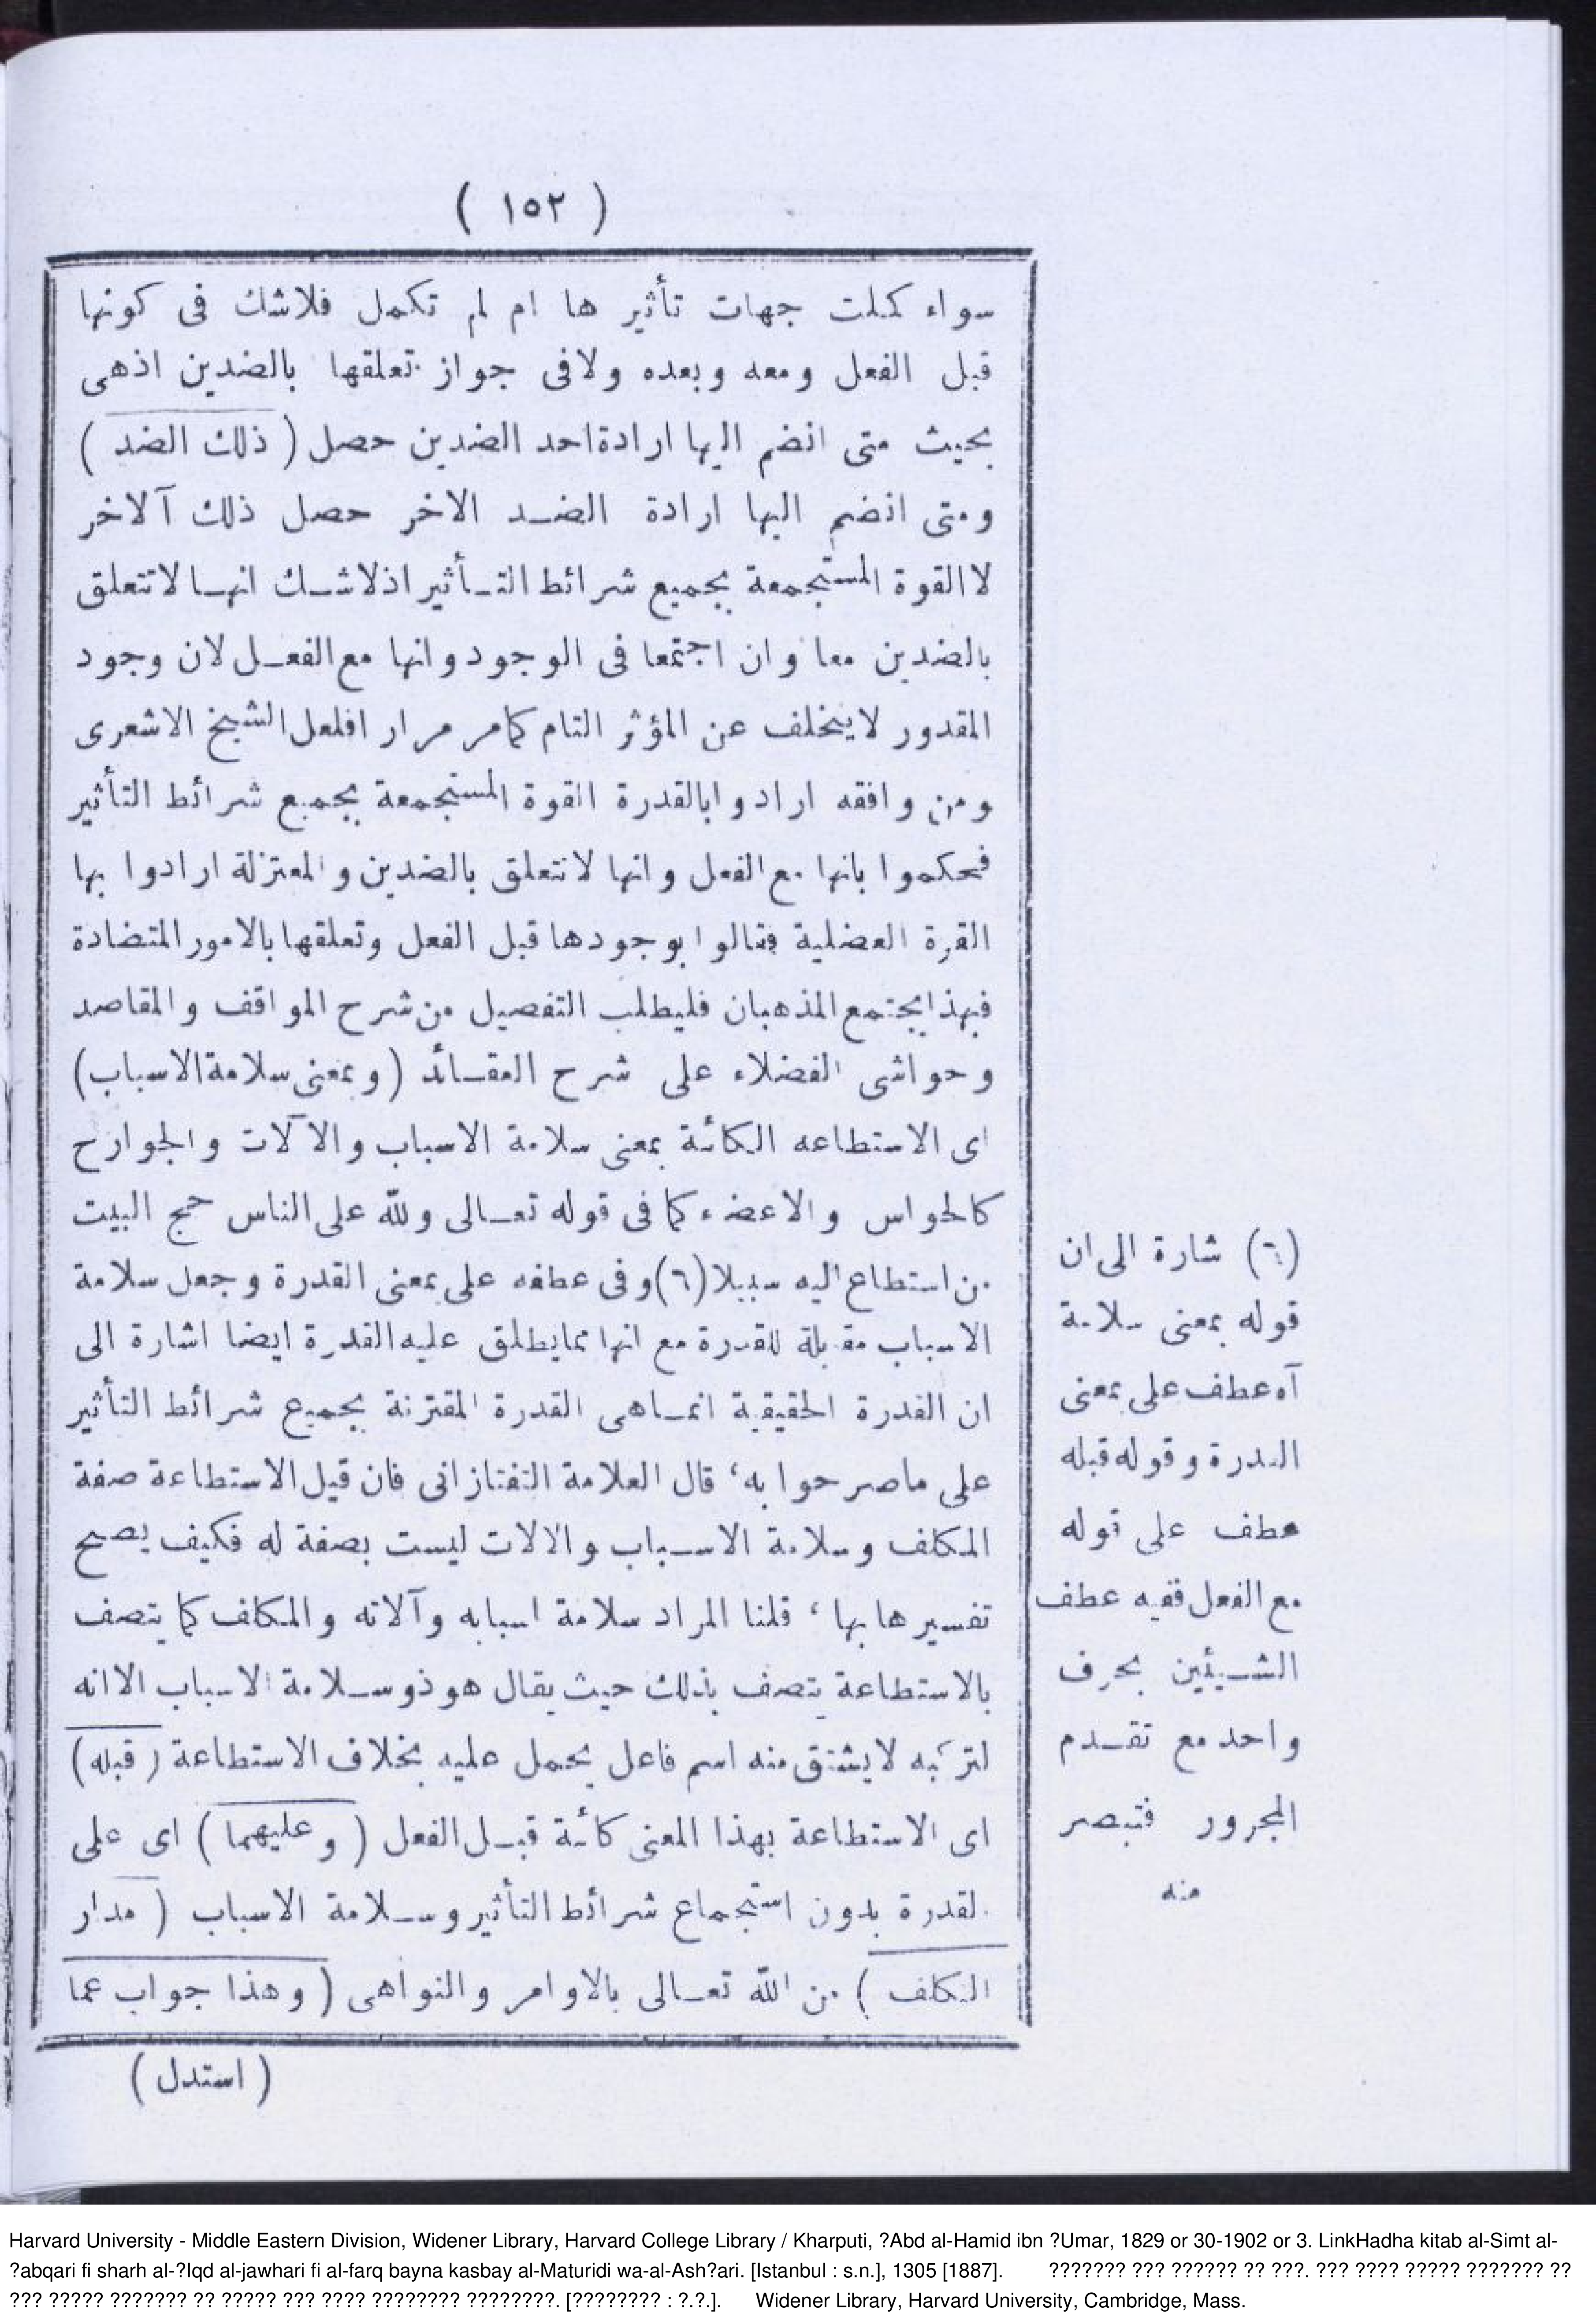 ( ١٥٢ )
سواء كملت جهات تأثير ها ام لم تكمل فلاشك فى كونها
قبل الفعل ومعه وبعده ولافى جواز تعلقها بالضدين اذهى
بحيث متى انضم اليها ارادة احد الضدين حصل ( ذلك الضد )
ومتى انضم اليها ارادة الضد الاخر حصل ذلك آلاخر
لا القوة المستجمعة بجميع شرائط التأثير اذلاشك انها لاتتعلق
بالضدين معا وان اجتمعا فى الوجود وانها مع الفعل لان وجود
المقدور لايتخلف عن المؤثر التام كامر مرارا فلعل الشيخ الاشعرى
ومن وافقه ارادوا بالقدرة القوة المستجمعة بجميع شرائط التأثير
فحكموا بانها مع الفعل وانها لاتتعلق بالضدين والمعتزلة ارادوا بها
القوة العضلية فقالوا بوجودها قبل الفعل وتعلقها بالامور المتضادة
فبهذا يجتمع المذهبان فليطلب التفصيل من شرح المواقف والمقاصد
وحواشى الفضلاء على شرح العقائد ( وبمعنى سلامة الاسباب )
اى الاستطاعه الكائنة بمعنى سلامة الاسباب والآلات والجوارح
كالحواس والاعضاء كما فى قوله تعالى ولله على الناس حج البيت
من استطاع اليه سبيلا (٦) وفى عطفه على بمعنى القدرة وجعل سلامة
الاسباب مقابلة للقدرة مع انها مما يطلق عليه القدرة ايضا اشارة الى
ان القدرة الحقيقية انماهى القدرة المقترنة بجميع شرائط التأثير
على ماصرحوا به، قال العلامة التفتازانى فان قيل الاستطاعة صفة
المكلف وسلامة الاسباب والالات ليست بصفة له فكيف يصح
تفسيرها بها، قلنا المراد سلامة اسبابه وآلاته والمكلف كما يتصف
بالاستطاعة يتصف بذلك حيث يقال هو ذو سلامة الاسباب الا انه
لتركبه لايشتق منه اسم فاعل يحمل عليه بخلاف الاستطاعة ( قبله )
اى الاستطاعة بهذا المعنى كائنة قبل الفعل ( وعليهما ) اى على
القدرة بدون استجماع شرائط التأثير وسلامة الاسباب ( مدار
التكلف ) من الله تعالى بالاوامر والنواهى ( وهذا جواب عما
( استدل )
(٦) شارة الى ان
قوله بمعنى سلامة
آه عطف على بمعنى
القدرة وقوله قبله
عطف على قوله
مع الفعل ففيه عطف
الشيئين بحرف
واحد مع تقدم
المجرور فتبصر
منه
Harvard University - Middle Eastern Division, Widener Library, Harvard College Library / Kharputi, ?Abd al-Hamid ibn ?Umar, 1829 or 30-1902 or 3. LinkHadha kitab al-Simt al-
?abqari fi sharh al-?Iqd al-jawhari fi al-farq bayna kasbay al-Maturidi wa-al-Ash?ari. [Istanbul : s.n.], 1305 [1887]. ??????? ??? ?????? ?? ???. ??? ???? ????? ??????? ??
??? ????? ??????? ?? ????? ??? ???? ???????? ????????. [???????? : ?.?.]. Widener Library, Harvard University, Cambridge, Mass.